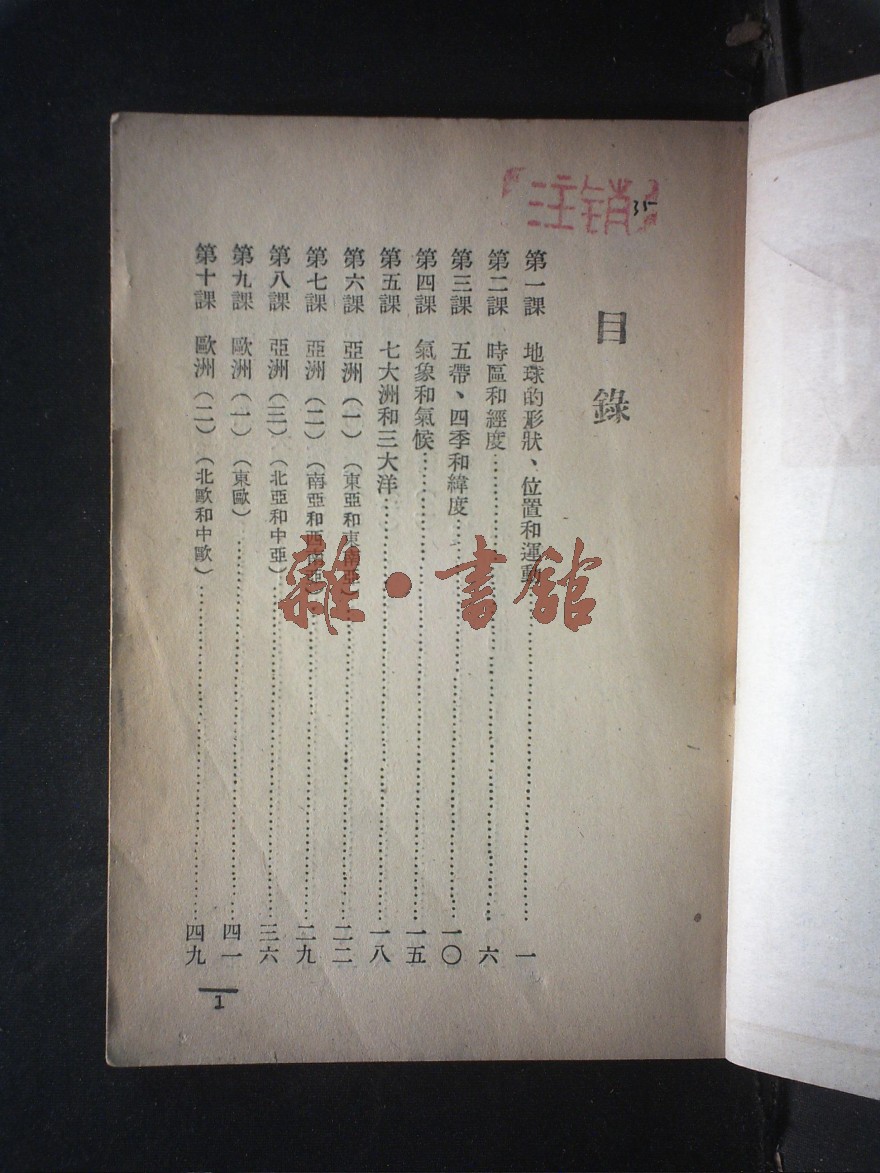 注销
35
目錄
第一課 地球的形狀、位置和運動……一
第二課 時區和經度……六
第三課 五帶、四季和緯度……一〇
第四課 氣象和氣候……一五
第五課 七大洲和三大洋……一八
第六課 亞洲（一）（東亞和東南亞）……二二
第七課 亞洲（二）（南亞和西南亞）……二九
第八課 亞洲（三）（北亞和中亞）……三六
第九課 歐洲（一）（東歐）……四一
第十課 歐洲（二）（北歐和中歐）……四九
1
雜·書館